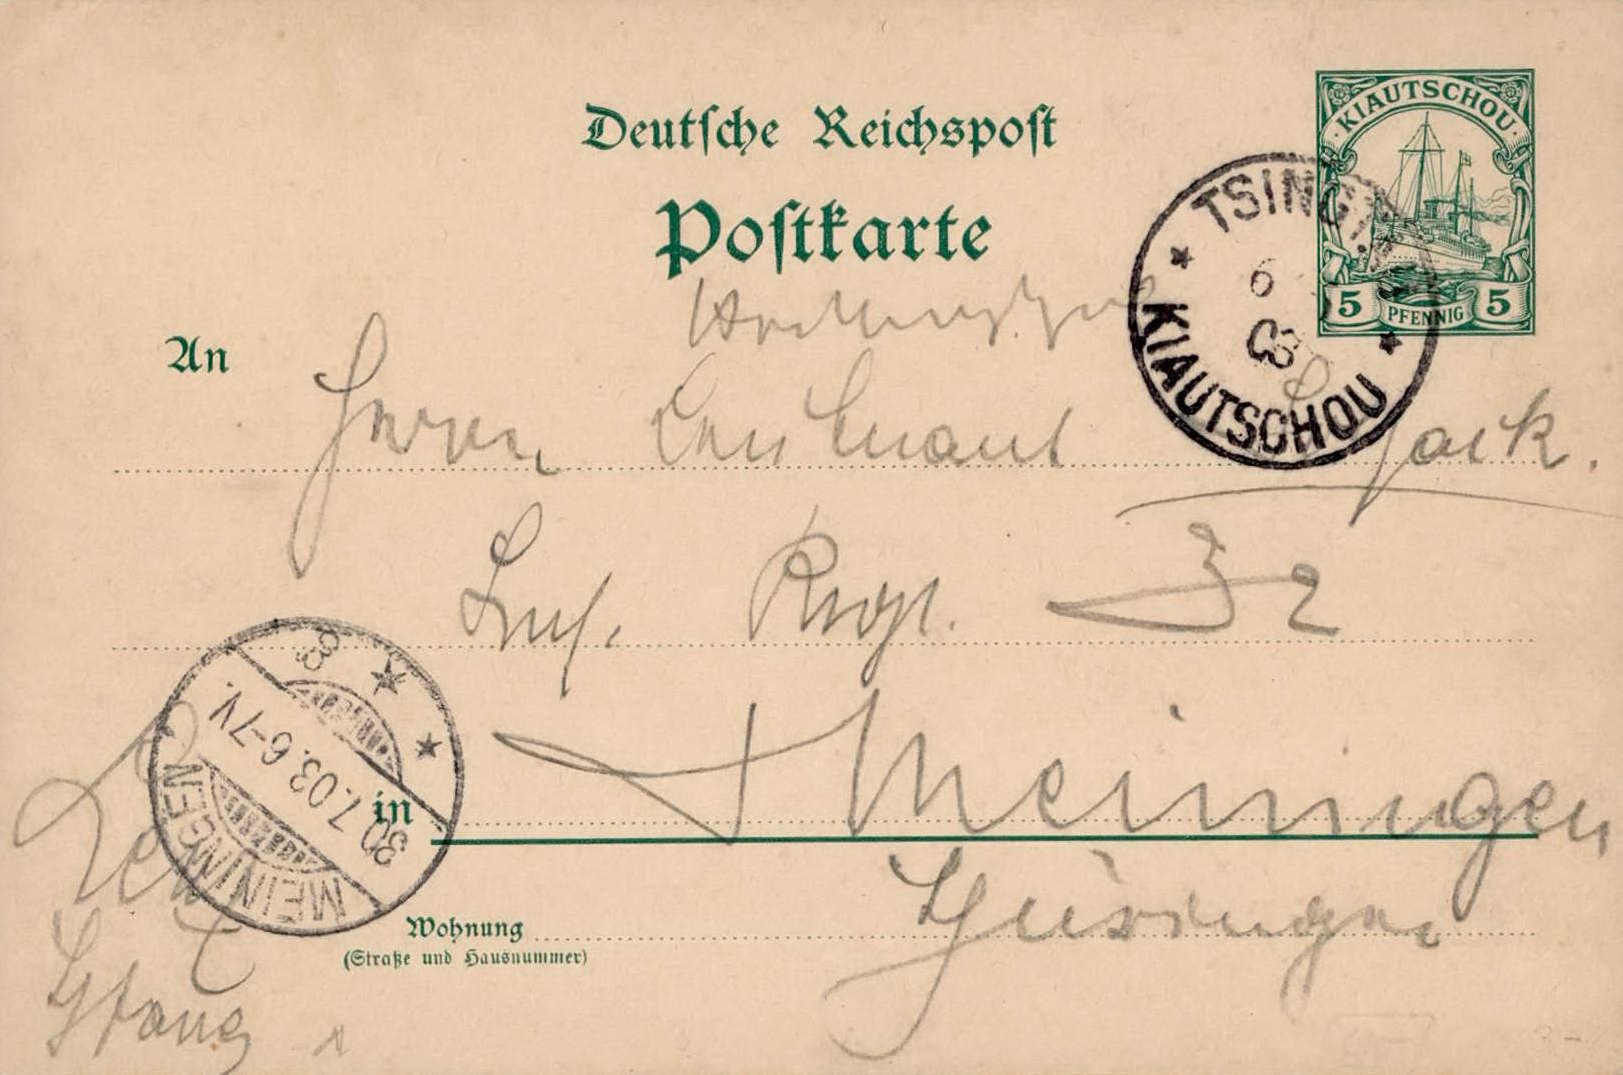 Deutsche Reichspost
Postkarte
KIAUTSCHOU
5 PFENNIG 5
TSINGTAU
6
03
KIAUTSCHOU
An
Herrn Leutnant
Inf. Regt. 32
in Meiningen
Thüringen
MEININGEN
30.7.03.6-7V.
Wohnung
(Straße und Hausnummer)